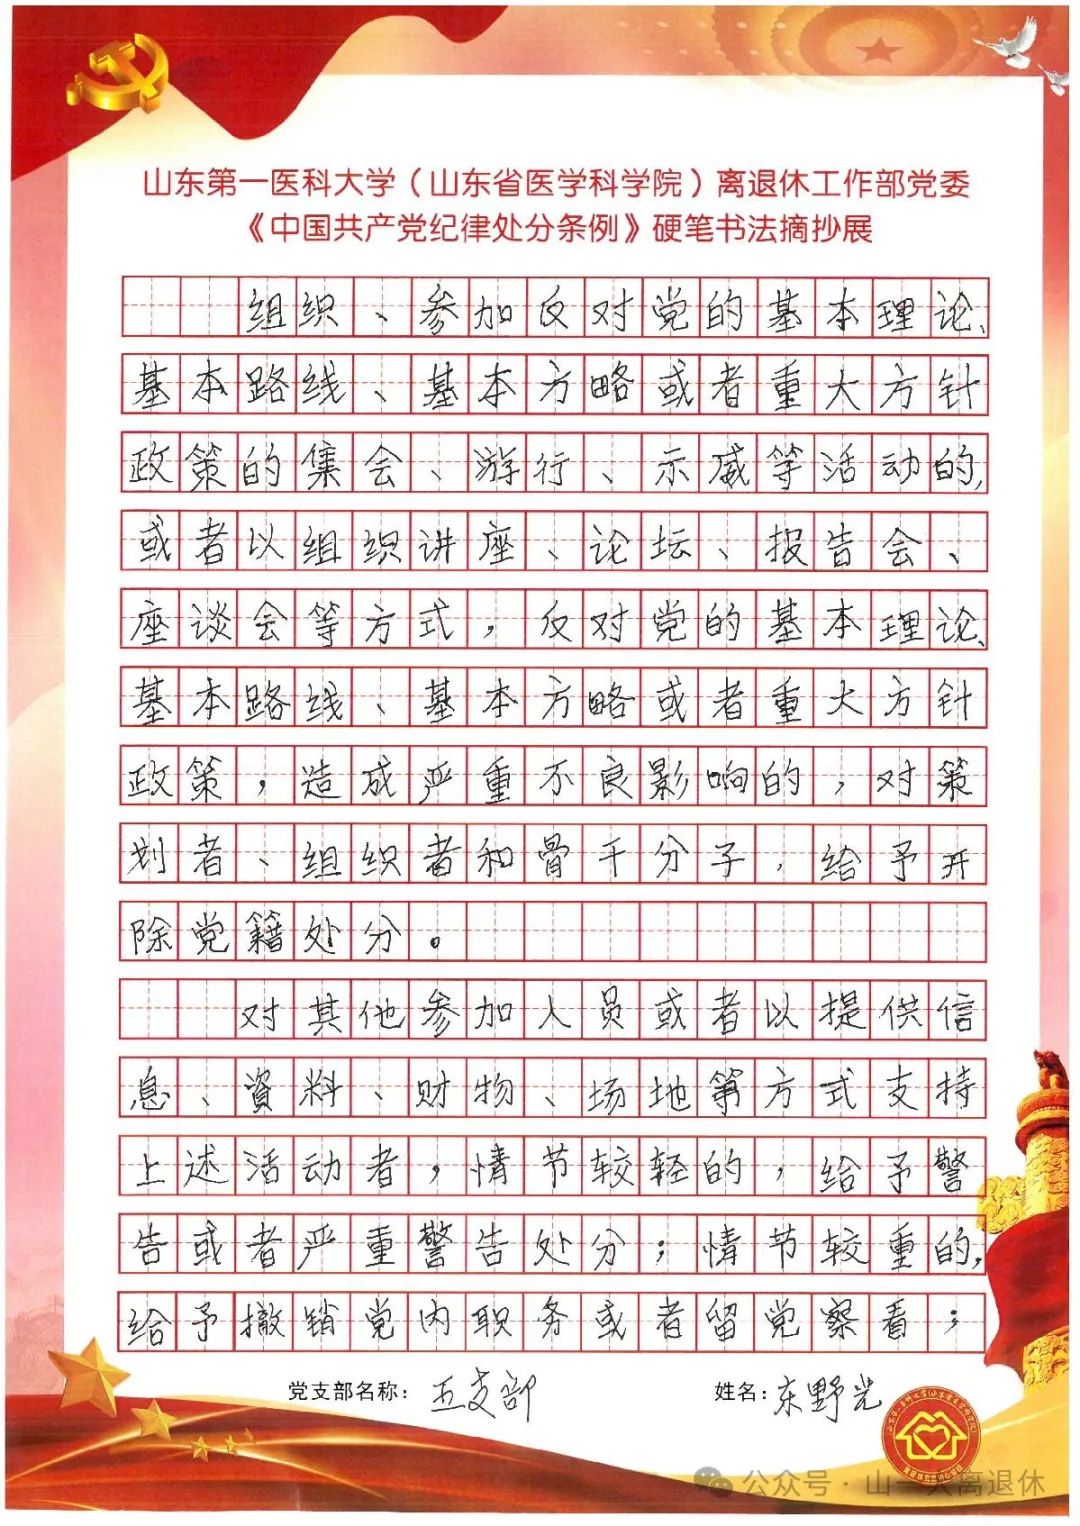 山东第一医科大学（山东省医学科学院）离退休工作部党委
《中国共产党纪律处分条例》硬笔书法摘抄展
组织、参加反对党的基本理论、
基本路线、基本方略或者重大方针
政策的集会、游行、示威等活动的，
或者以组织讲座、论坛、报告会、
座谈会等方式，反对党的基本理论、
基本路线、基本方略或者重大方针
政策，造成严重不良影响的，对策
划者、组织者和骨干分子，给予开
除党籍处分。
对其他参加人员或者以提供信
息、资料、财物、场地等方式支持
上述活动者，情节较轻的，给予警
告或者严重警告处分；情节较重的，
给予撤销党内职务或者留党察看；
党支部名称：五支部
姓名：东野光
公众号·山一大离退休